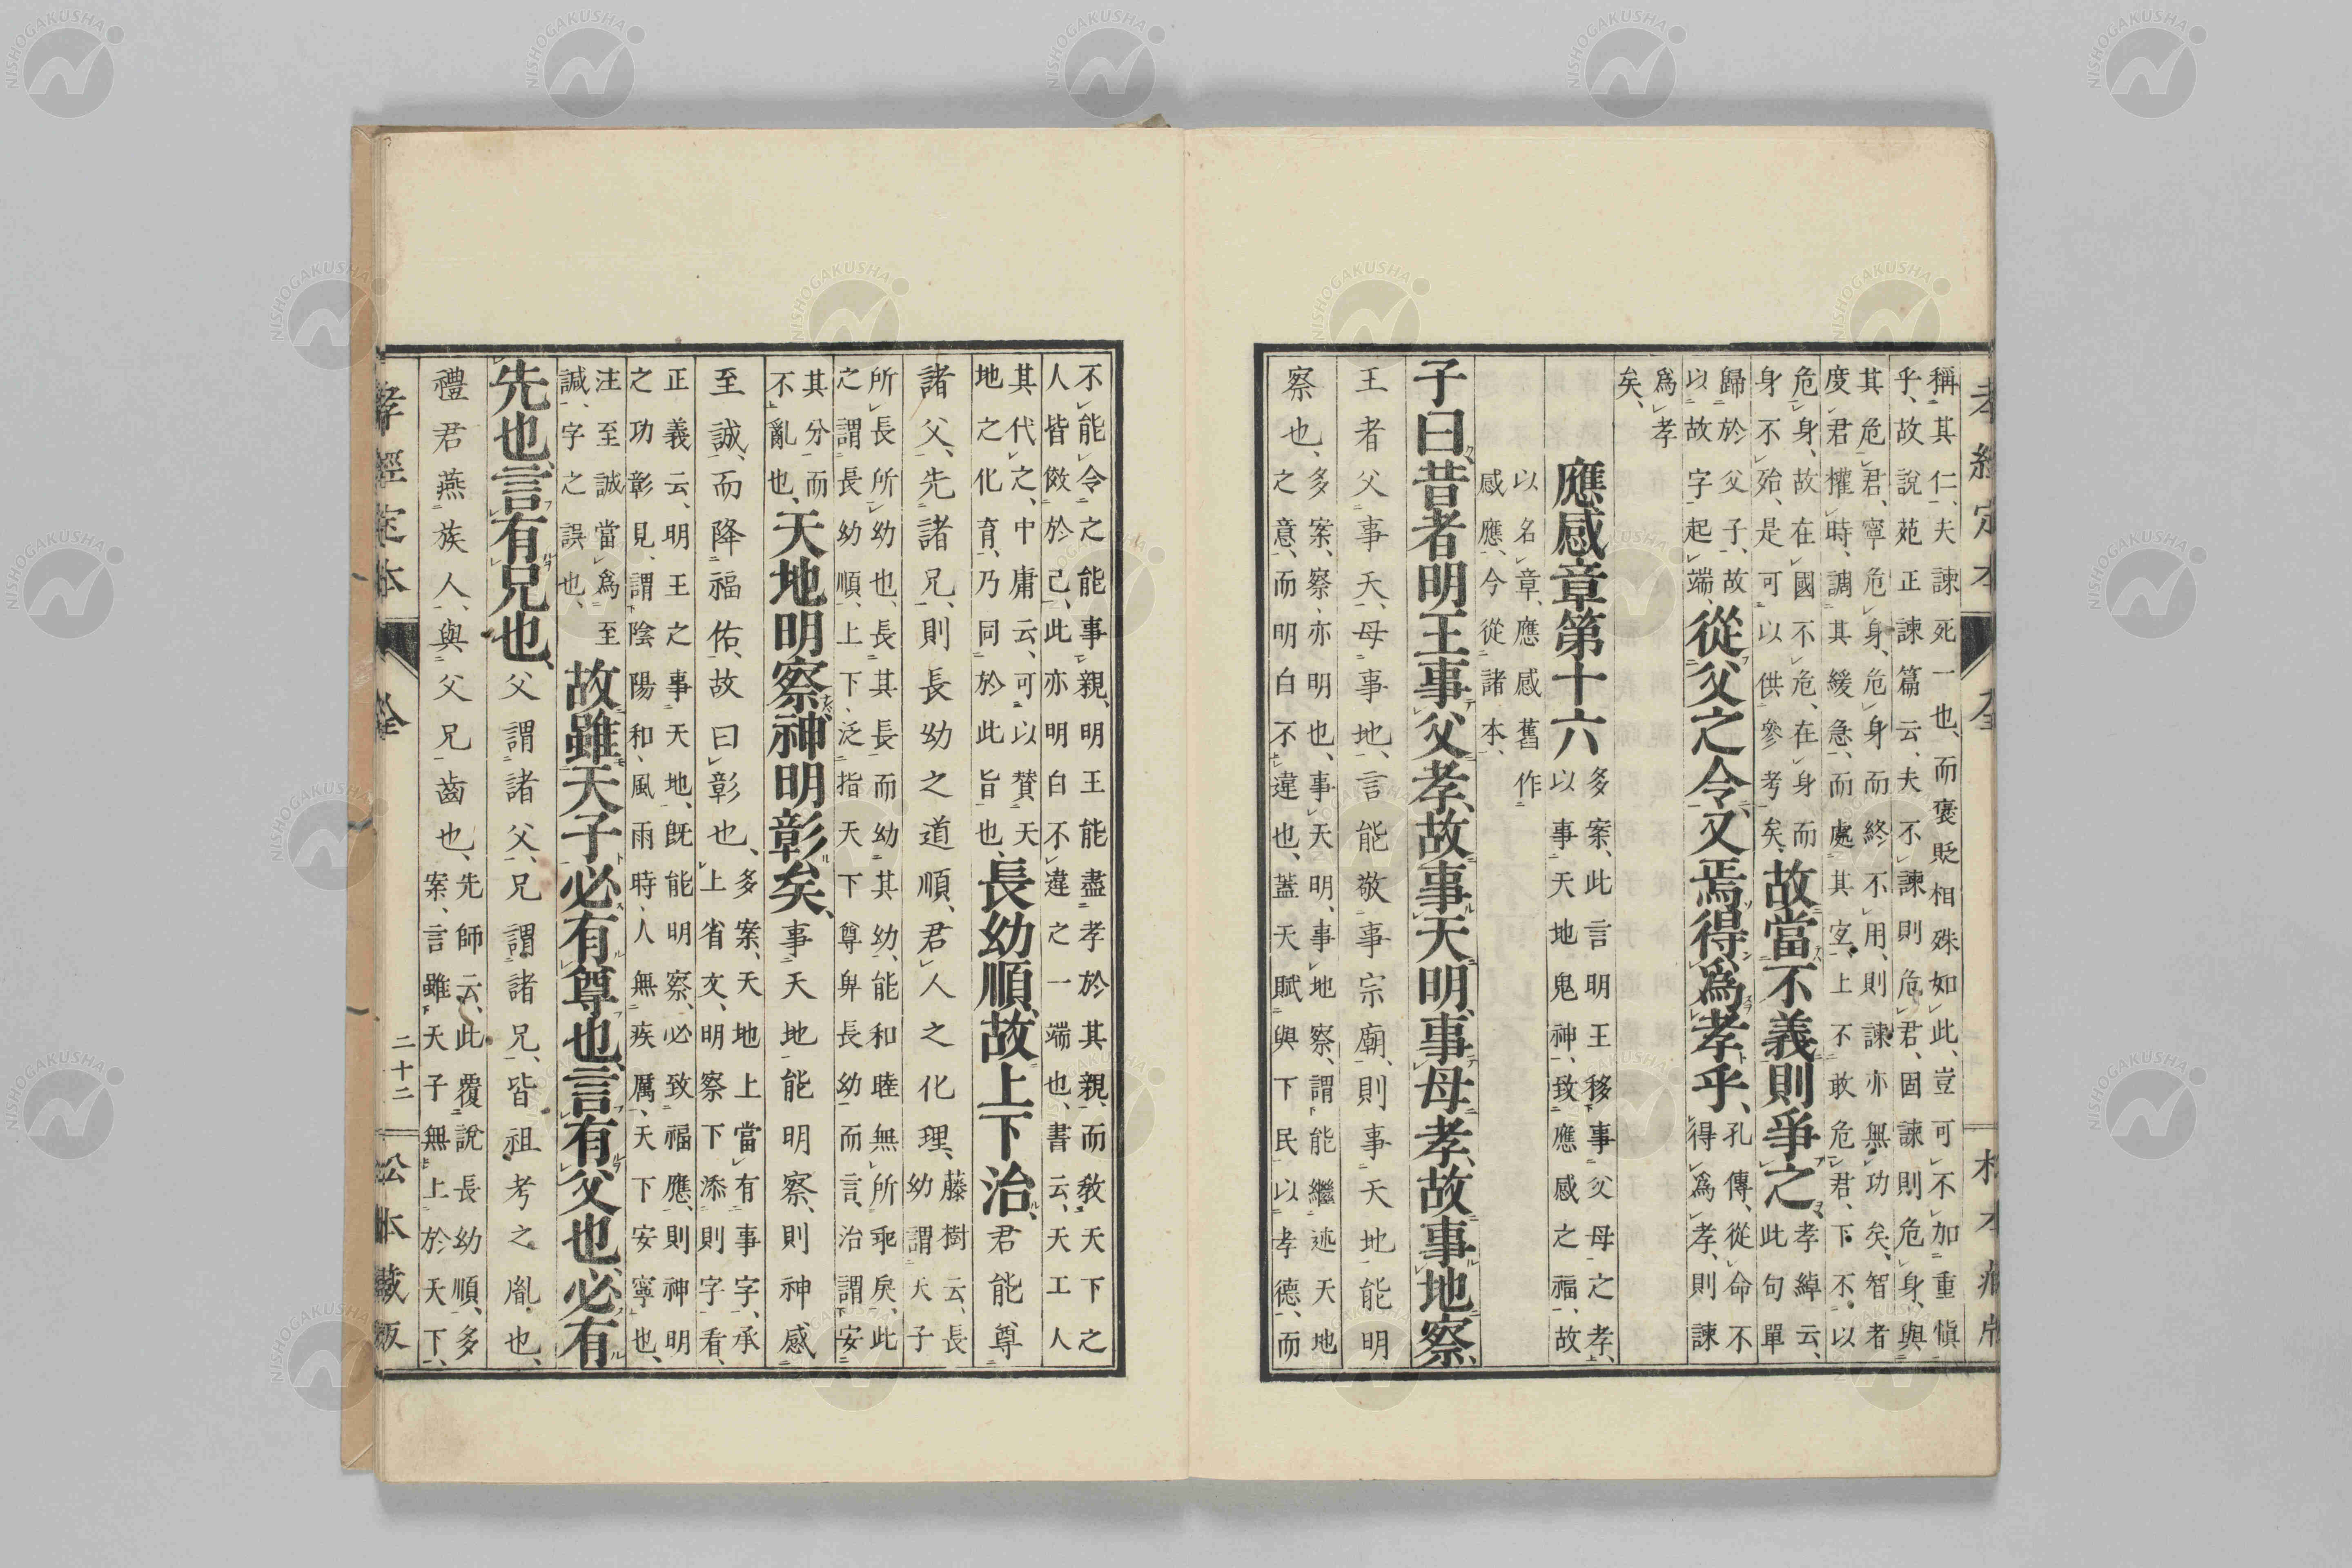 孝經定本 全 松本藏版
稱其仁、夫諫死一也、而褒貶相殊如此、豈可不加重愼
乎、故說苑正諫篇云、夫不諫則危君、固諫則危身、與
其危君、寧危身、危身而終不用、則諫亦無功矣、智者
度君權時、調其緩急、而處其宜、上不敢危君、下不以
危身、故在國不危、在身而
身不殆、是可以供參考矣、
故當不義則爭之、
孝綽云、
此句單
歸於父子、故
以故字起端
從父之令、又焉得爲孝乎、
孔傳、從命不
得爲孝、則諫
爲孝
矣、
應感章第十六
多案、此言明王移事父母之孝、
以事天地鬼神、致應感之福、故
以名章、應感舊作
感應、今從諸本、
子曰、昔者明王事父孝、故事天明、事母孝、故事地察、
王者父事天、母事地、言能敬事宗廟、則事天地能明
察也、
多案、察、亦明也、事天明、事地察、謂能繼述天地
之意、而明白不違也、蓋天賦與下民以孝德、而
不能令之能事親、明王能盡孝於其親、而敎天下之
人皆傚於己、此亦明白不違之一端也、書云、天工人
其代之、中庸云、可以贊天
地之化育、乃同於此旨也、
長幼順、故上下治、
君能尊
諸父、先諸兄、則長幼之道順、君人之化理、
藤樹云、長
幼謂天子
所長所幼也、長其長而幼其幼、能和睦無所乖戾、此
之謂長幼順、上下、泛指天下尊卑長幼而言、治謂安
其分而
不亂也、
天地明察、神明彰矣、
事天地能明察、則神感
至誠、而降福佑、故曰彰也、
多案、天地上當有事字、承
上省文、明察下添則字看、
正義云、明王之事天地、旣能明察、必致福應、則神明
之功彰見、謂陰陽和、風雨時、人無疾厲、天下安寧也、
注至誠當爲至
諴、字之誤也、
故雖天子必有尊也、言有父也、必有
先也、言有兄也、
父謂諸父、兄謂諸兄、皆祖考之胤也、
禮君燕族人、與父兄齒也、
先師云、此覆說長幼順、多
案、言雖天子無上於天下、
孝經定本 全 二十二 松本藏版
NISHOGAKUSHA